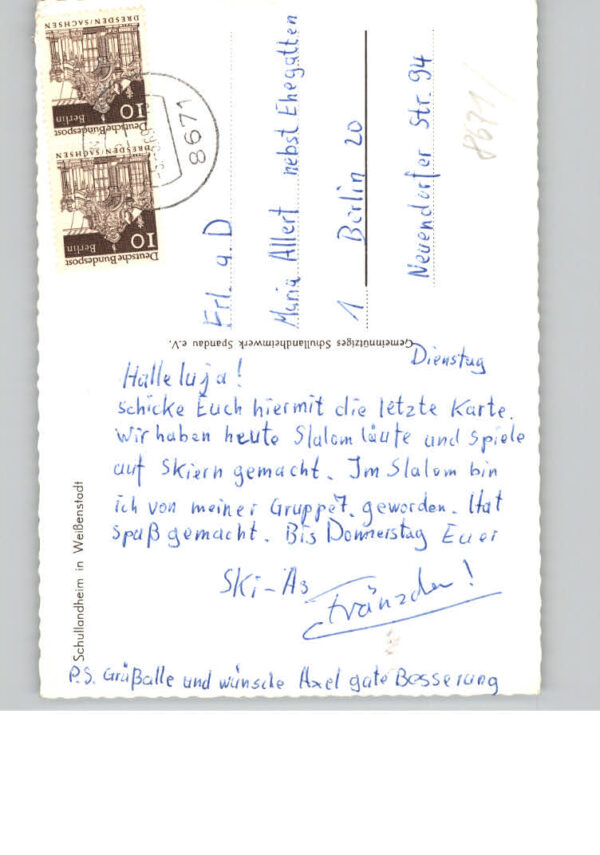 Dienstag
Halleluja!
schicke Euch hiermit die letzte Karte.
Wir haben heute Slalomläufe und Spiele
auf Skiern gemacht. Im Slalom bin
ich von meiner Gruppe 1. geworden. Hat
spaß gemacht. Bis Donnerstag Euer
Ski-Äs
Fränzchen!
P.S. Grüß alle und wünsche Axel gute Besserung
Schullandheim in Weißenstadt
Gemeinnütziges Schullandheimwerk Spandau e.V.
Frl. a. D
Maria Allert nebst Ehegatten
1 Berlin 20
Neuendorfer Str. 94
8671
8671
DRESDEN/SACHSEN
10
Berlin
Deutsche Bundespost
DRESDEN/SACHSEN
10
Berlin
Deutsche Bundespost